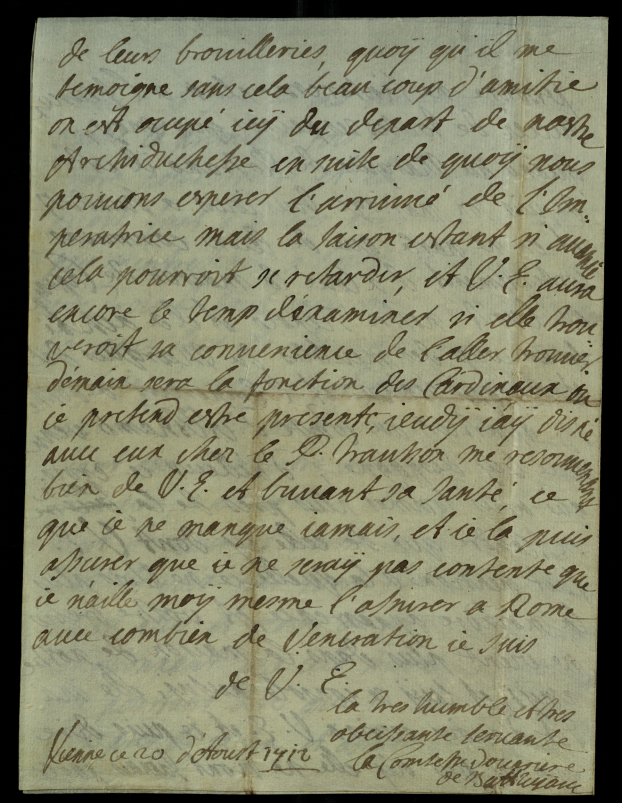 de leurs brouilleries, quoÿ qu'il me
temoigne sans cela beau coup d'amitie
on est ocupé icÿ du depart de nostre
Archiduchesse en suite de quoÿ nous
pouuons esperer l'arriuué de l'Im=
peratrice mais la saison estant si auancé
cela pourroit se retarder, et V. E. aura
encore le temp d'examiner si elle trou
veroit sa convenience de l'aller trouuer,
démain sera la fonction des Cardinaux ou
ie pretend estre presente, ieudÿ i'aÿ disné
auec eux cher le P. Trautson me resouuenant
bien de V. E. et buuant sa santé, ce
que ie ne manque iamais, et ie la puis
assurer que ie ne seraÿ pas contente que
ie n'aille moÿ mesme l'assurer a Rome
auec combien de Veneration ie suis
de V. E.
la tres humble et tres
obeissante seruante
Vienne ce 20 d'Aoust 1712
la Comtesse Douariere
de Batthyani